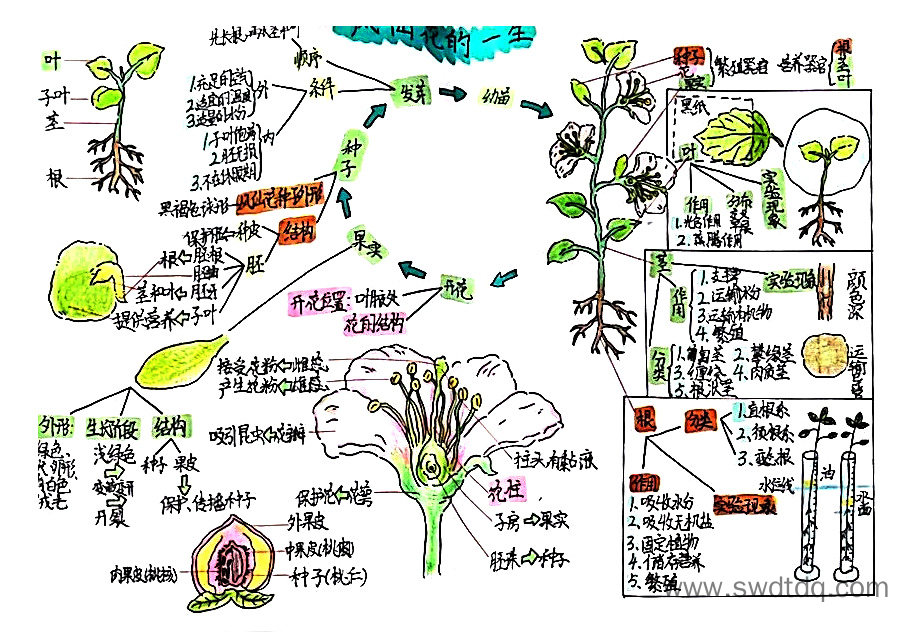 凤仙花的一生
叶
子叶
茎
根
先长根,再长茎和叶
顺序
条件
外
1.充足的空气
2.适宜的温度
3.适量的水分
内
1.子叶饱满
2.胚无损
3.不在休眠期
发芽
幼苗
种子
黑褐色球形
凤仙花种子外形
结构
保护胚 种皮
胚
根 胚根
胚轴
茎和叶 胚牙
提供营养 子叶
果实
开花
开花位置:叶腋处
花的结构
外形:
绿色、
白色
生长阶段
浅绿色
开裂
结构
种子 果皮
保护、传播种子
接受花粉 雌蕊
产生花粉 雄蕊
吸引昆虫 花瓣
保护花 花萼
柱头有黏液
花柱
子房 果实
胚珠 种子
外果皮
中果皮(桃肉)
内果皮(桃核)
种子(桃仁)
种子
花
果实
繁殖器官
营养器官
根
茎
叶
黑纸
叶
作用
1.光合作用
2.蒸腾作用
分布
实验现象
茎
作用
1.支撑
2.运输水份
3.运输有机物
4.繁殖
实验现象
颜色深
分类
1.匍匐茎
2.攀缘茎
3.缠绕茎
4.肉质茎
5.根状茎
运输管
根
分类
1.直根系
2.须根系
3.变态根
作用
1.吸收水分
2.吸收无机盐
3.固定植物
4.储存营养
5.繁殖
实验现象
水位线
油
水面
www.swdtdq.com